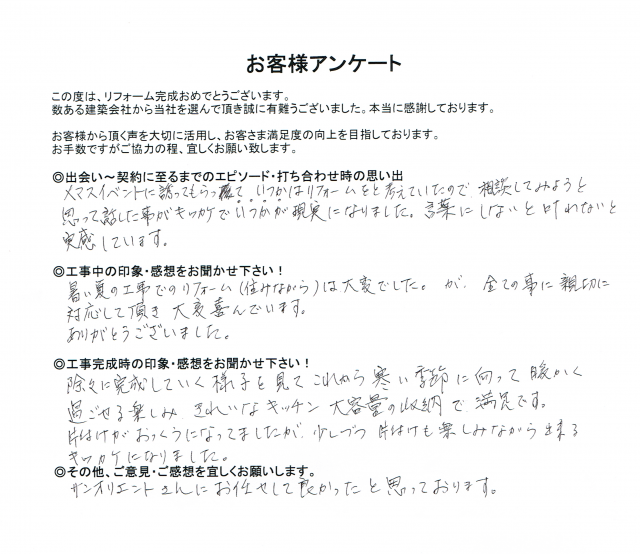 お客様アンケート
この度は、リフォーム完成おめでとうございます。
数ある建築会社から当社を選んで頂き誠に有難うございました。本当に感謝しております。
お客様から頂く声を大切に活用し、お客さま満足度の向上を目指しております。
お手数ですがご協力の程、宜しくお願い致します。
◎出会い～契約に至るまでのエピソード・打ち合わせ時の思い出
イベントに誘ってもらって、いつかはリフォームをと考えていたので相談してみようと
思って話した事がキッカケでいつかが現実になりました。言葉にしないと叶わないと
実感しています。
◎工事中の印象・感想をお聞かせ下さい！
暑い夏の工事でのリフォーム(住みながら)は大変でした。が、全ての事に親切に
対応して頂き大変喜んでいます。
ありがとうございました。
◎工事完成時の印象・感想をお聞かせ下さい！
除々に完成していく様子を見てこれから寒い季節に向って暖かく
過ごせる楽しみ きれいなキッチン 大容量の収納で満足です。
片はけがおっくうになってましたが、少しづつ片はけも楽しみながら出来る
キッカケになりました。
◎その他、ご意見・ご感想を宜しくお願いします。
サンオリエントさんにお任せして良かったと思っております。